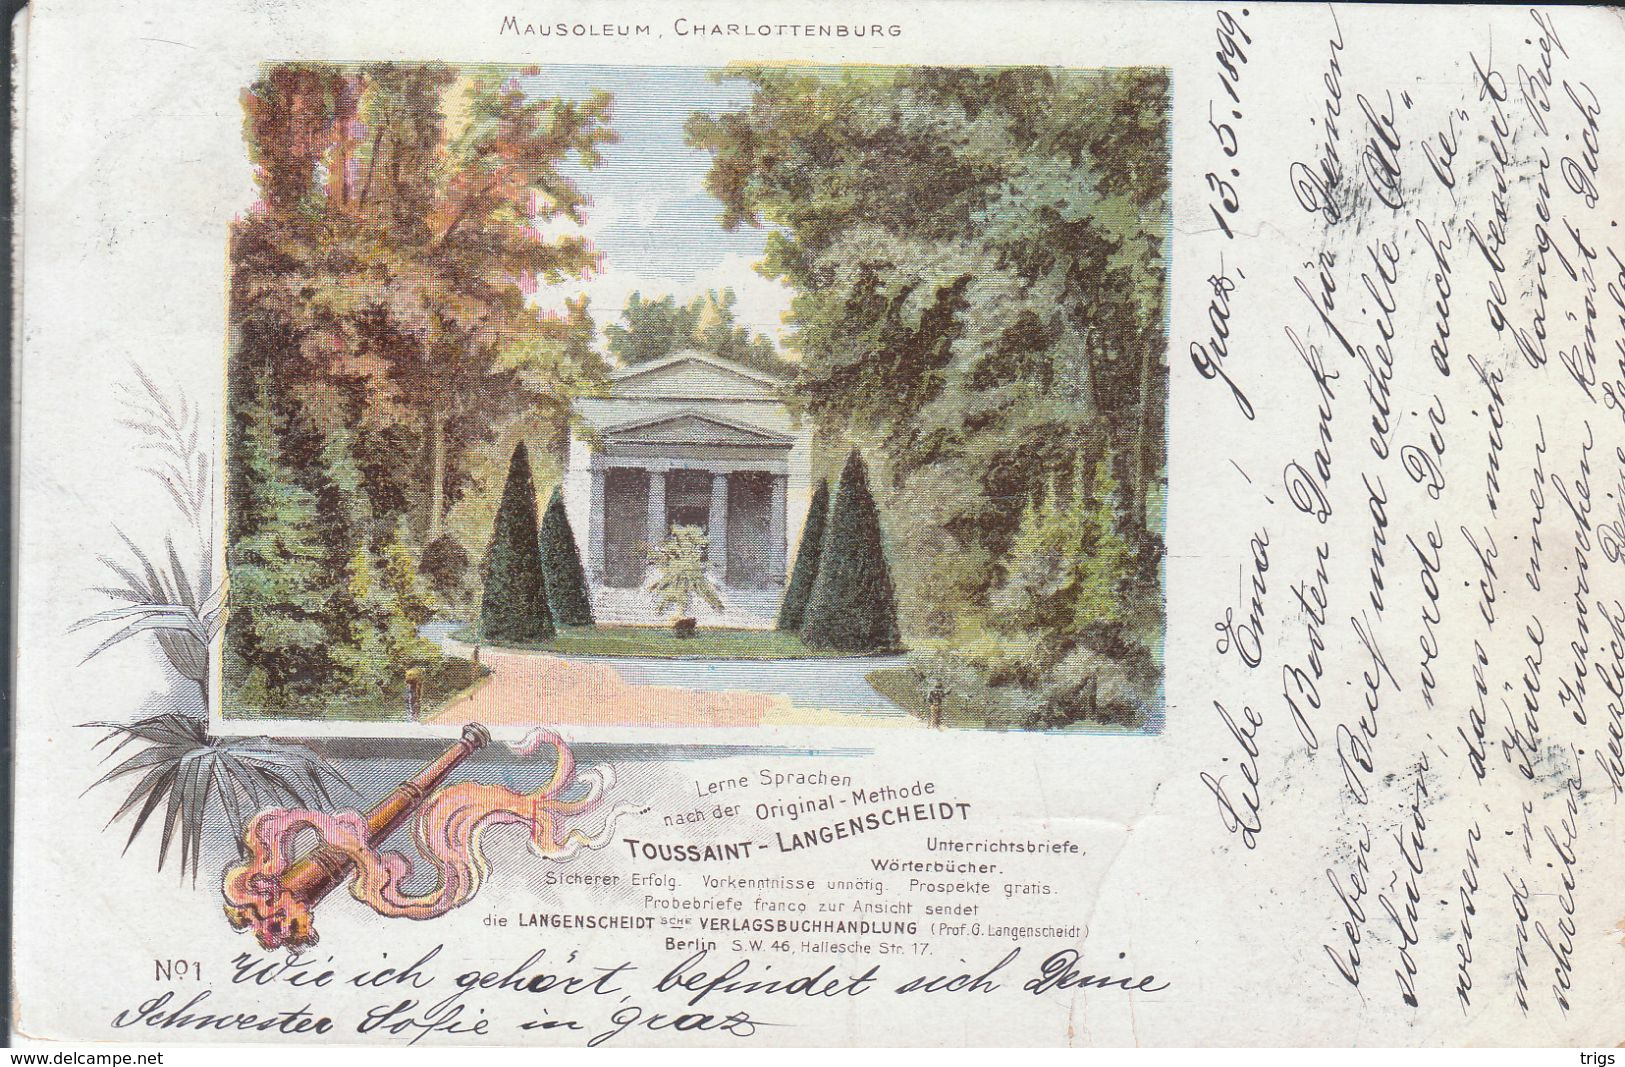 MAUSOLEUM, CHARLOTTENBURG
Lerne Sprachen
nach der Original-Methode
TOUSSAINT-LANGENSCHEIDT
Unterrichtsbriefe,
Wörterbücher.
Sicherer Erfolg. Vorkenntnisse unnötig. Prospekte gratis.
Probebriefe franco zur Ansicht sendet
die LANGENSCHEIDT'SCHE VERLAGSBUCHHANDLUNG (Prof. G. Langenscheidt)
Berlin S.W. 46, Hallesche Str. 17.
No 1
Wie ich gehört, befindet sich Deine
Schwester Sofie in Graz
Graz, 13.5.1899.
Liebe Ema!
Besten Dank für Deinen
lieben Brief und ertheilte „Ab"
solution, werde Dir auch „be"
weisen, dass ich mich gebessert
und in Kürze einen langen Brief
schreiben. Inzwischen küsst Dich
herzlich Deine
delcampe.net
trigs